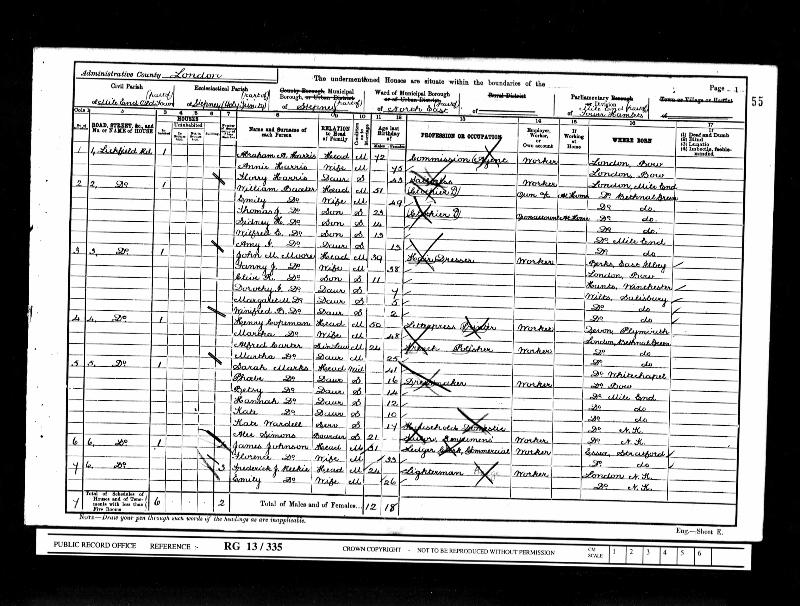 Administrative County London
The undermentioned Houses are situate within the boundaries of the
Page 1
55
Civil Parish
(part of)
of Mile End Old Town
Ecclesiastical Parish
(part of)
of Stepney (Holy Trinity)
County Borough, Municipal Borough, or Urban District
of Stepney (part of)
Ward of Municipal Borough or of Urban District
of North East (part of)
Rural District
of
Parliamentary Borough or Division
Mile End (part of)
of Tower Hamlets
Town or Village or Hamlet
of
ROAD, STREET, &c., and No. or NAME of HOUSE
HOUSES
Name and Surname of each Person
RELATION to Head of Family
Age last Birthday of
PROFESSION OR OCCUPATION
Employer, Worker, or Own account
If Working at Home
WHERE BORN
If (1) Deaf and Dumb (2) Blind (3) Lunatic (4) Imbecile, feeble-minded
1 1, Lichfield Rd. 1 Abraham A. Harris Head M 72 Commission Agent Worker London, Bow
Annie Harris Wife M 75 London, Bow
Florry Harris Daur S 43 London, Mile End
2 2, Do 1 William Baxter Head M 51 Own ac At Home Do Bethnal Green
Emily Do Wife M 49 Do do
Thomas J. Do Son S 23 Own account At Home Do do
Sidney H. Do Son S 14 Do do
Wilfred E. Do Son S 13 Do Mile End
Amy I. Do Daur S 13 Do do
3 3, Do 1 John M. Moore Head M 39 Hair Dresser Worker Berks, East Ilsley
Fanny J. Do Wife M 38 London, Bow
Clive R. Do Son S 11 Hants, Winchester
Dorothy I. Do Daur S 7 Wilts, Salisbury
Margaret M. Do Daur S 5 Do do
Winifred B. Do Daur S 2 Do do
4 4, Do 1 Henry Copeman Head M 50 Letterpress Printer Worker Devon Plymouth
Martha Do Wife M 48 London, Bethnal Green
Alfred Carter Son in law M 24 French Polisher Worker Do do
Martha Do Daur M 25 Do do
5 5, Do 1 Sarah Marks Head Wid 41 Do Whitechapel
Phoebe Do Daur S 16 Dressmaker Worker Do Bow
Betsy Do Daur S 14 Do Mile End
Hannah Do Daur S 12 Do do
Kate Do Daur S 10 Do do
Kate Wardell Serv S 17 Household Domestic Do N.K.
Alec Simons Boarder S 21 Worker Do N.K.
6 6, Do 1 James Johnson Head M 31 Ledger Clerk, Commercial Worker Essex, Stratford
Florence Do Wife M 33 Do do
7 6, Do Frederick J. Meekie Head M 24 Lighterman Worker London N.K.
Emily Do Wife M 26 Do N.K.
7 Total of Schedules of Houses and of Tenements with less than Five Rooms 6 2 Total of Males and of Females... 12 18
Note—Draw your pen through such words of the headings as are inapplicable.
Eng.—Sheet E.
PUBLIC RECORD OFFICE REFERENCE :- RG 13/335 CROWN COPYRIGHT - NOT TO BE REPRODUCED WITHOUT PERMISSION CM SCALE 1 2 3 4 5 6